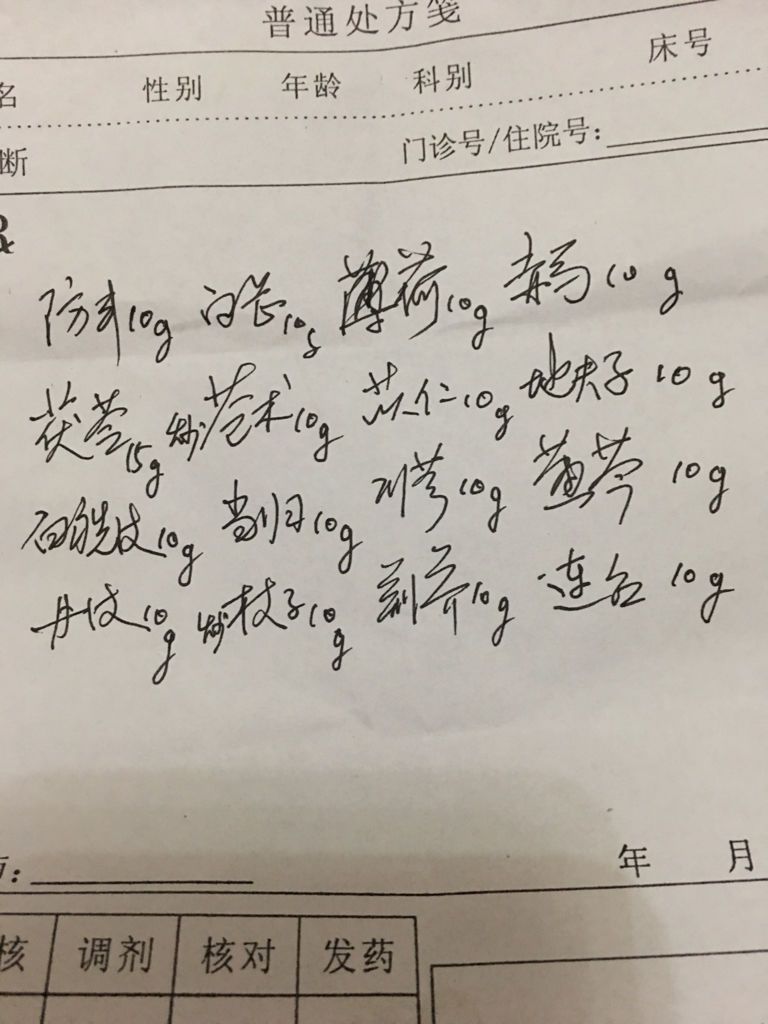 普通处方笺
名 性别 年龄 科别 床号
断 门诊号/住院号:
防丰10g 白芷10g 薄荷10g 赤芍10g
茯苓15g 炒苍术10g 苡仁10g 地夫子10g
白鲜皮10g 当归10g 川芎10g 黄芩10g
丹皮10g 炒枝子10g 荆芥10g 连翘10g
年 月
核 调剂 核对 发药